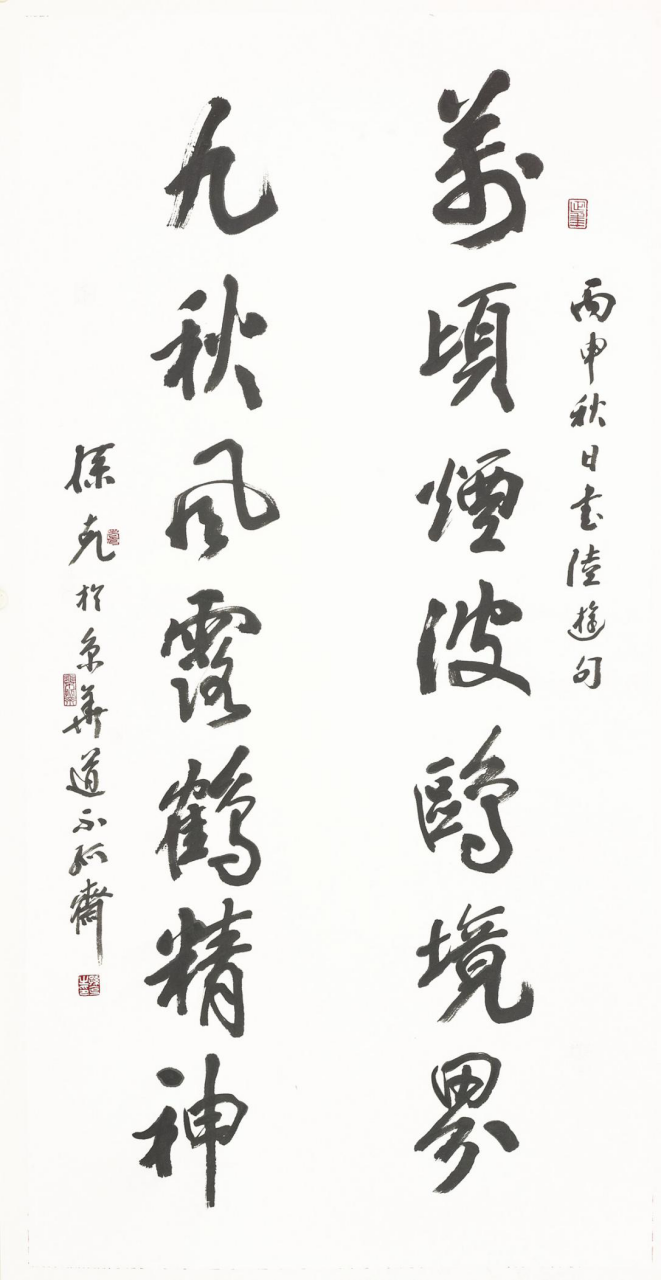 丙申秋日书陸游句
萬頃煙波鷗境界
九秋風露鶴精神
徐克於京華道不孤齋